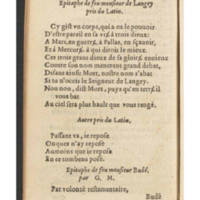 Epitaphe de feu monsieur de Langey
pris du Latin.
Cy gist un corps, qui a eu le pouvoir
D'estre pareil en sa vie à trois dieux:
A Mars, en guerre, à Pallas, en sçavoir,
Et à Mercure, à qui diroit le mieux.
Cet trois dieux de sa gloire envieux
Contre son nom mouvrent grand debat,
Disans ainsi: Mort, nostre nom s'abat
Si tu n'occis le Seigneur de Langey.
Non, dist Mort, puis qu'en terre il
vous bat
Au ciel sera plus hault que vous rangé.
Autre pris du Latin.
Passant va, ie repose
Onques n'ay reposé
Amis que ie repose
En ce tombeau posé.
Epitaphe de feu monsieur Budé,
par G. M.
Par volonté testamentaire,
Budé